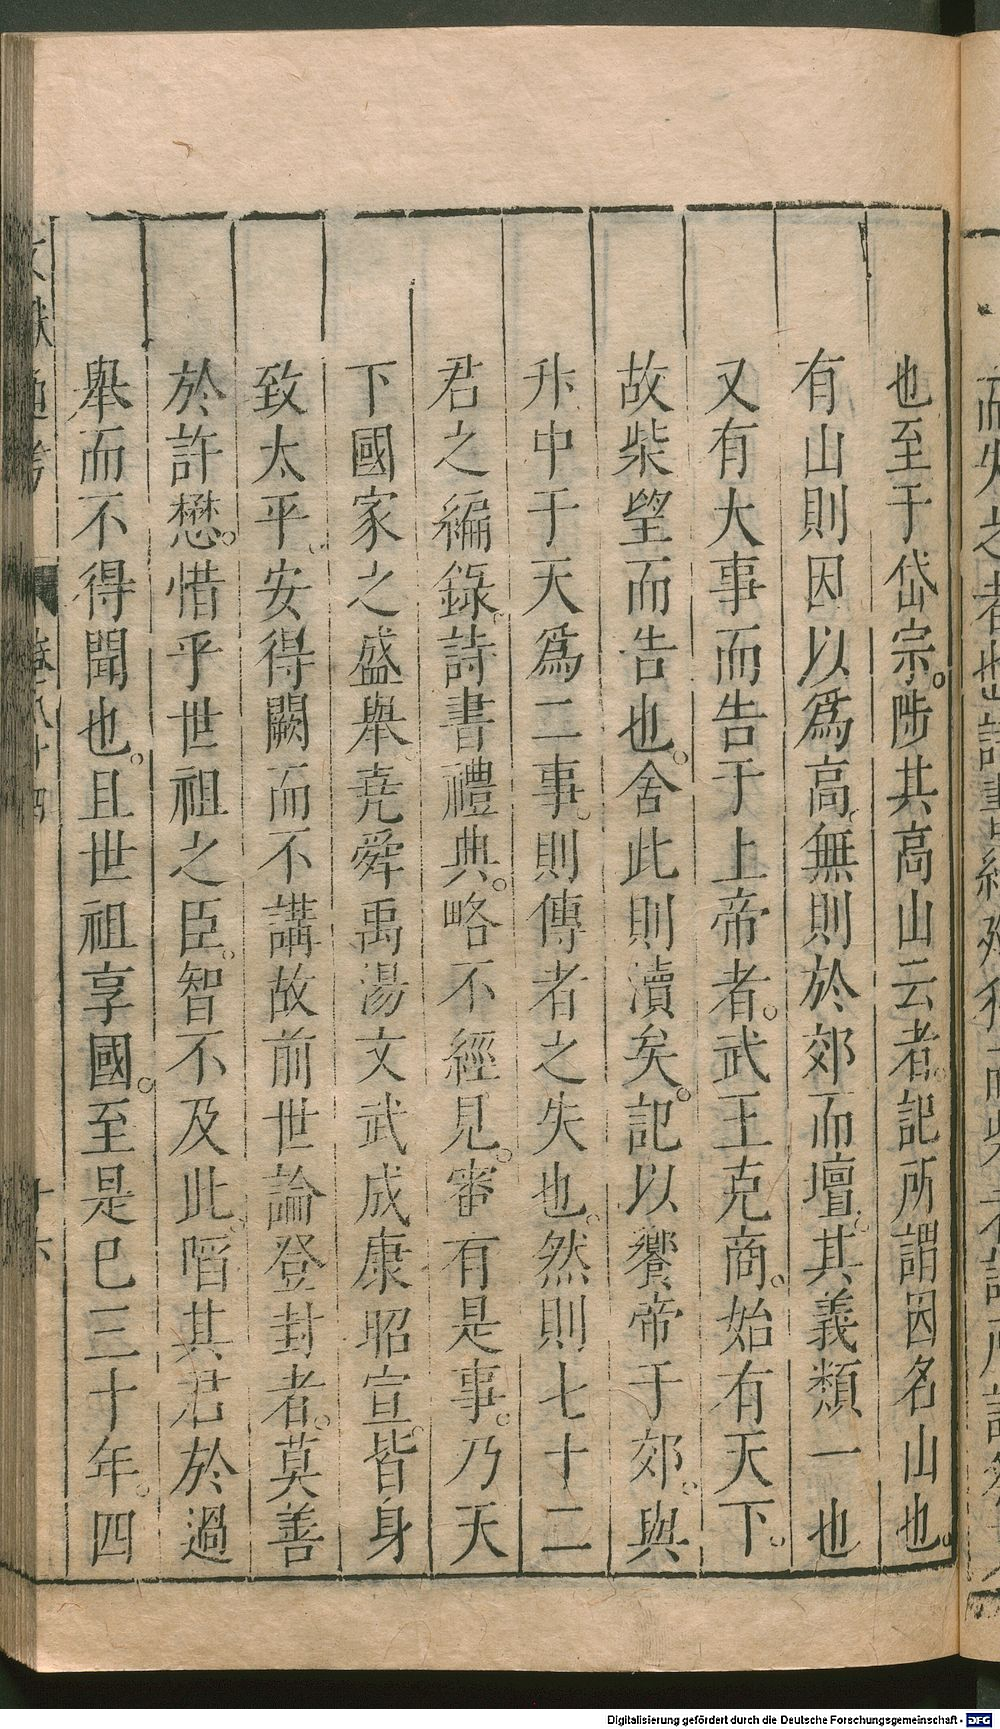 也至于岱宗。陟其高山云者。記所謂因名山也。
有山則因以爲高。無則於郊而壇。其義類一也
又有大事而告于上帝者。武王克商。始有天下。
故柴望而告也。舍此則瀆矣。記以饗帝于郊。與
升中于天爲二事。則傳者之失也。然則七十二
君之編錄。詩書禮典。略不經見。審有是事。乃天
下國家之盛舉。堯舜禹湯文武成康昭宣。皆身
致太平。安得闕而不講故前世論登封者。莫善
於許懋。惜乎世祖之臣。智不及此。啗其君於過
舉而不得聞也。且世祖享國。至是巳三十年。四
文獻通考
卷八十四
十六
Digitalisierung gefördert durch die Deutsche Forschungsgemeinschaft - DFG